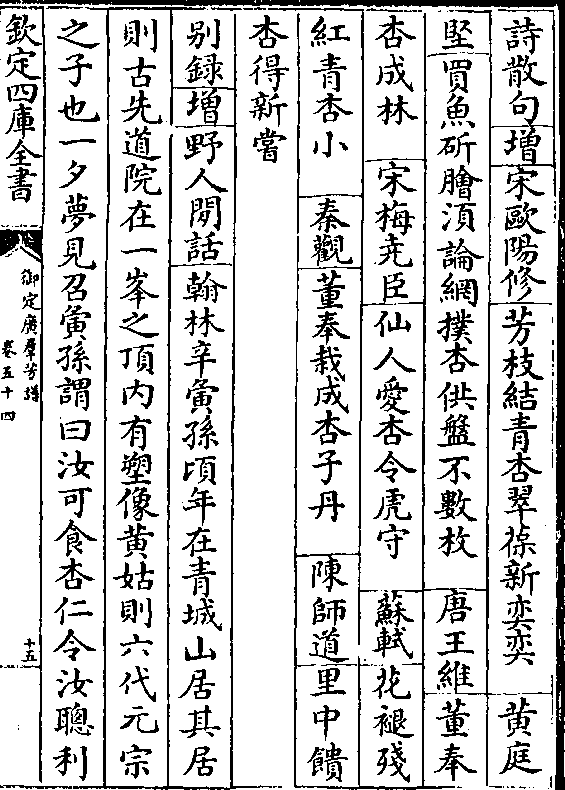 詩散句增宋歐陽修芳枝結青杏翠葆新奕奕 黄庭
堅買魚斫膾湏論網撲杏供盤不數枚 唐王維董奉
杏成林 宋梅尭臣仙人愛杏令虎守 蘇軾花褪殘
紅青杏小 秦觀董奉栽成杏子丹 陳師道里中饋
杏得新嘗
别録增野人閒話翰林辛夤孫頃年在青城山居其居
則古先道院在一峯之頂内有塑像黄姑則六代元宗
之子也一夕夢見召夤孫謂曰汝可食杏仁令汝聰利
欽定四庫全書
御定廣羣芳譜
卷五十四
十五